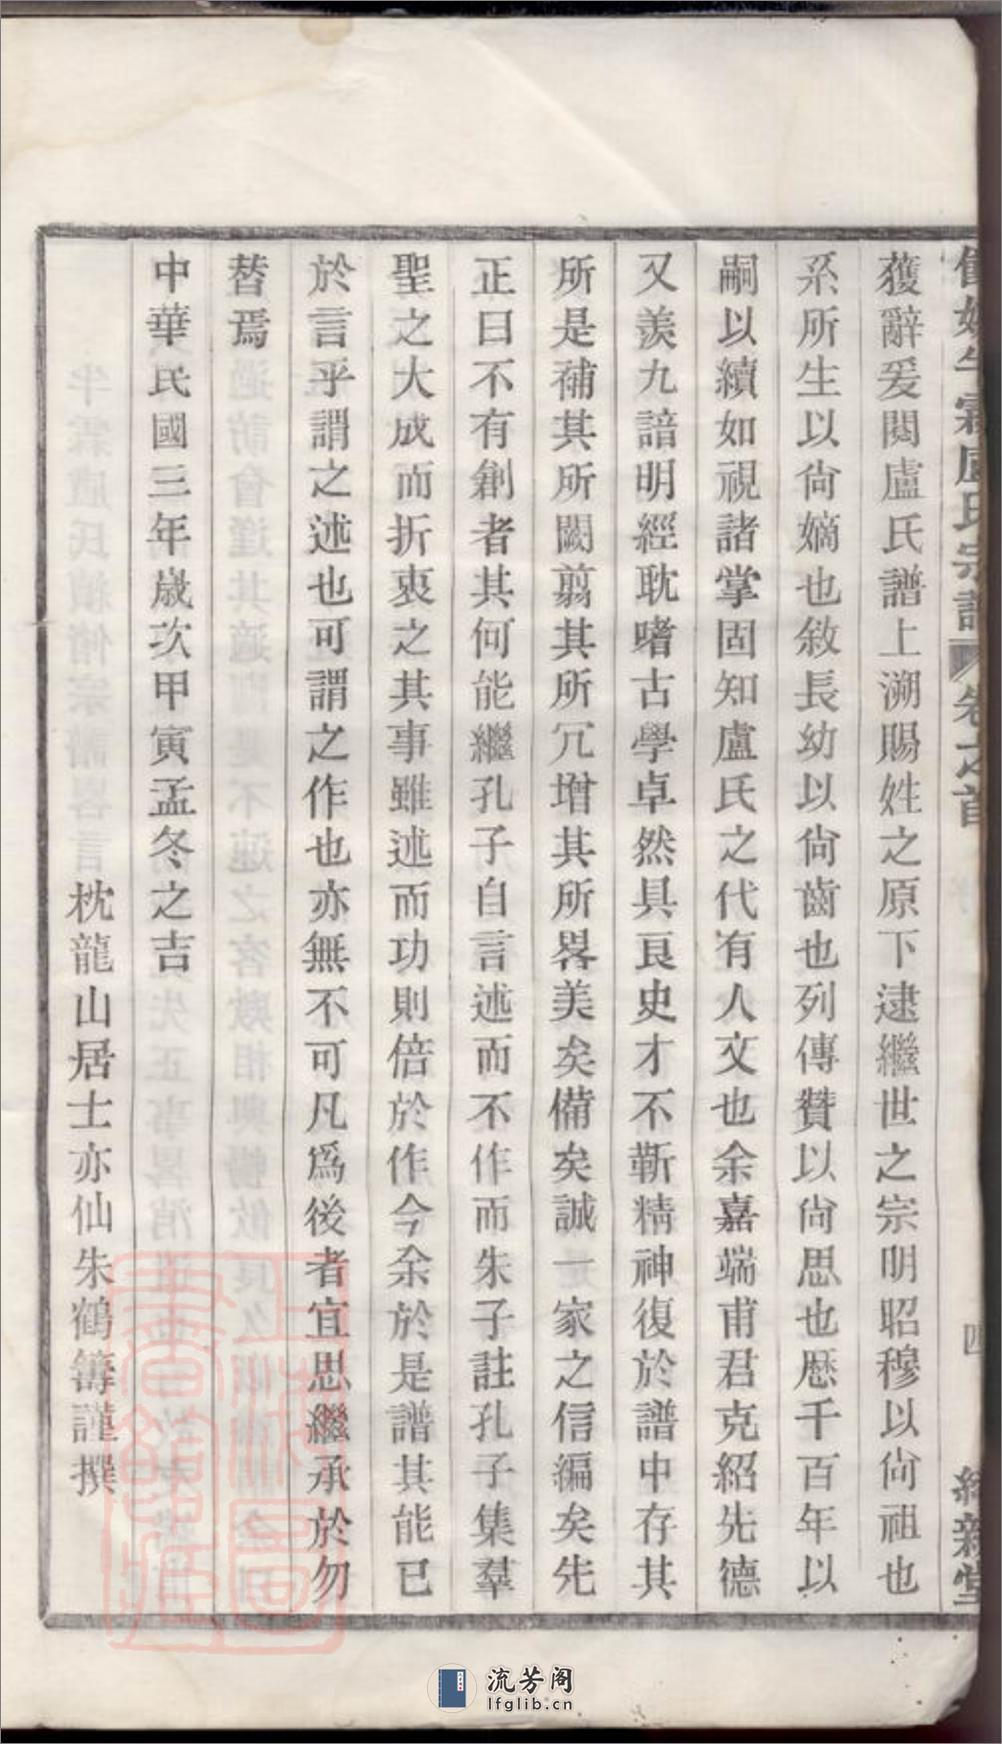 獲辭爰閱盧氏譜上溯賜姓之原下逮繼世之宗明昭穆以尙祖也
系所生以尙嫡也敘長幼以尙齒也列傳贊以尙思也歷千百年以
嗣以續如視諸掌固知盧氏之代有人文也余嘉端甫君克紹先德
又羨九諳明經耽嗜古學卓然具良史才不靳精神復於譜中存其
所是補其所闕翦其所冗增其所畧美矣備矣誠一家之信編矣先
正曰不有創者其何能繼孔子自言述而不作而朱子註孔子集羣
聖之大成而折衷之其事雖述而功則倍於作今余於是譜其能已
於言乎謂之述也可謂之作也亦無不可凡爲後者宜思繼承於勿
替焉
中華民國三年歲次甲寅孟冬之吉
枕龍山居士亦仙朱鶴籌謹撰
盧氏宗譜 卷之首 四
流芳阁
lfglib.cn